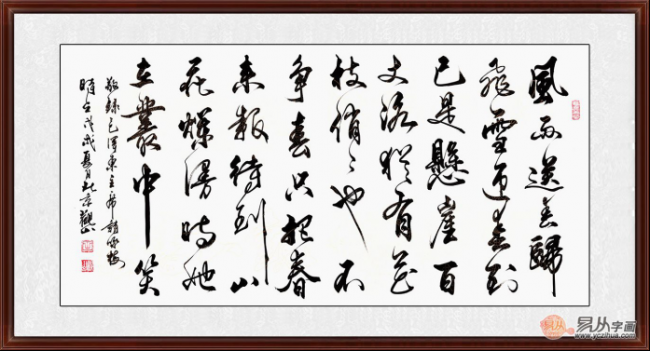 風雨送春歸
飛雪迎春到
已是懸崖百
丈冰猶有花
枝俏〻也不
争春只把春
来報待到山
花爛漫時她
在叢中笑
敬錄毛澤東主席詠梅
時在戊戌夏月北京觀山
易从字画
www.yczihua.com